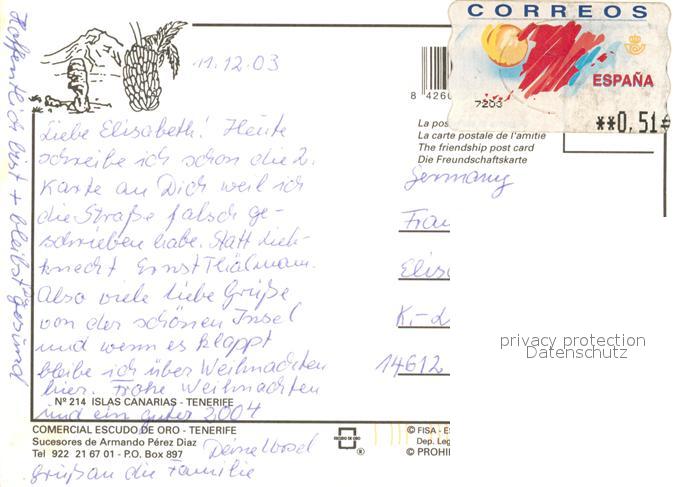 CORREOS
ESPAÑA
7203
**0,51€
11.12.03
8 4260
La pos
La carte postale de l'amitié
The friendship post card
Die Freundschaftskarte
Liebe Elisabeth! Heute
schreibe ich schon die 2.
Karte an Dich weil ich
die Straße falsch ge-
schrieben habe. Statt Lieb-
knecht Ernst Thälmann.
Also viele liebe Grüße
von der schönen Insel
und wenn es klappt
bleibe ich über Weihnachten
hier. Frohe Weihnachten
und ein guter 2004
Deine
Gruß an die Familie
Hoffentlich bist + bleibst Du gesund
Germany
Frau
Elis
K.-L
14612
privacy protection
Datenschutz
Nº 214 ISLAS CANARIAS - TENERIFE
COMERCIAL ESCUDO DE ORO - TENERIFE
Sucesores de Armando Pérez Diaz
Tel 922 21 67 01 - P.O. Box 897
ESCUDO DE ORO
®
© FISA - ES
Dep. Leg
© PROHIB